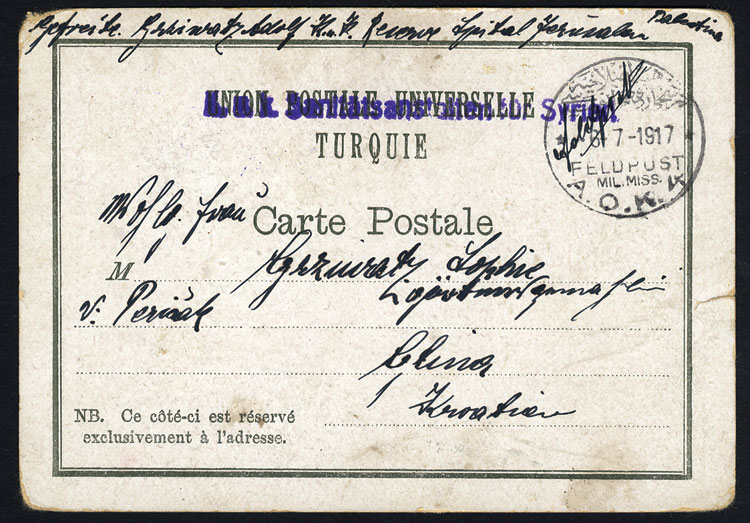 Adolf K.u.K. Reserve Spital Jerusalem Palestina
UNION POSTALE UNIVERSELLE
K.u.k. Sanitätsanstalten für Syrien.
TURQUIE
Feldpost
7-1917
FELDPOST
MIL. MISS.
A.O.K. 4
Wohlg. Frau
Carte Postale
M Sophie
v. Perušak
Glina
Kroatien
NB. Ce côté-ci est réservé
exclusivement à l'adresse.